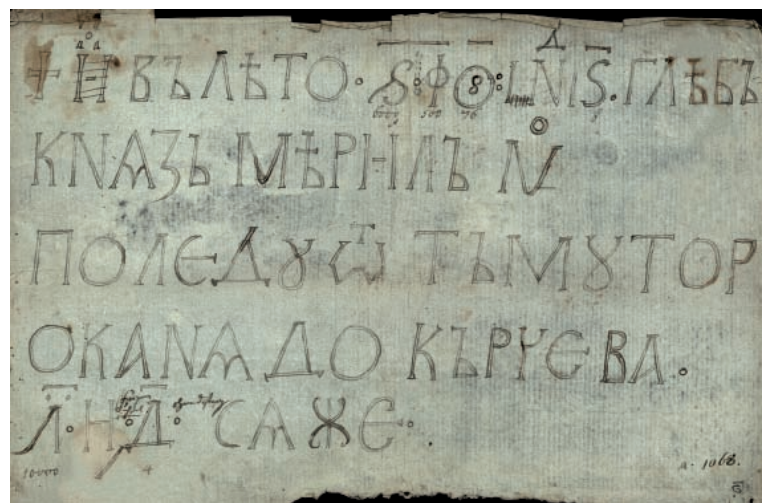 + Н ВЪ ЛѢТО · Ѕ · Ф О ИNД Ѕ · ГЛѢБЪ
КNѦЗЬ МѢРНЛЪ МО
ПО ЛЕДꙊ Ѿ ТЪМꙊТОР
ОКАNѦ ДО КЪРЧЕВА ·
҂І · Н Д · СѦЖЕ ·
6000 500 76
10000 4
A. 1068.